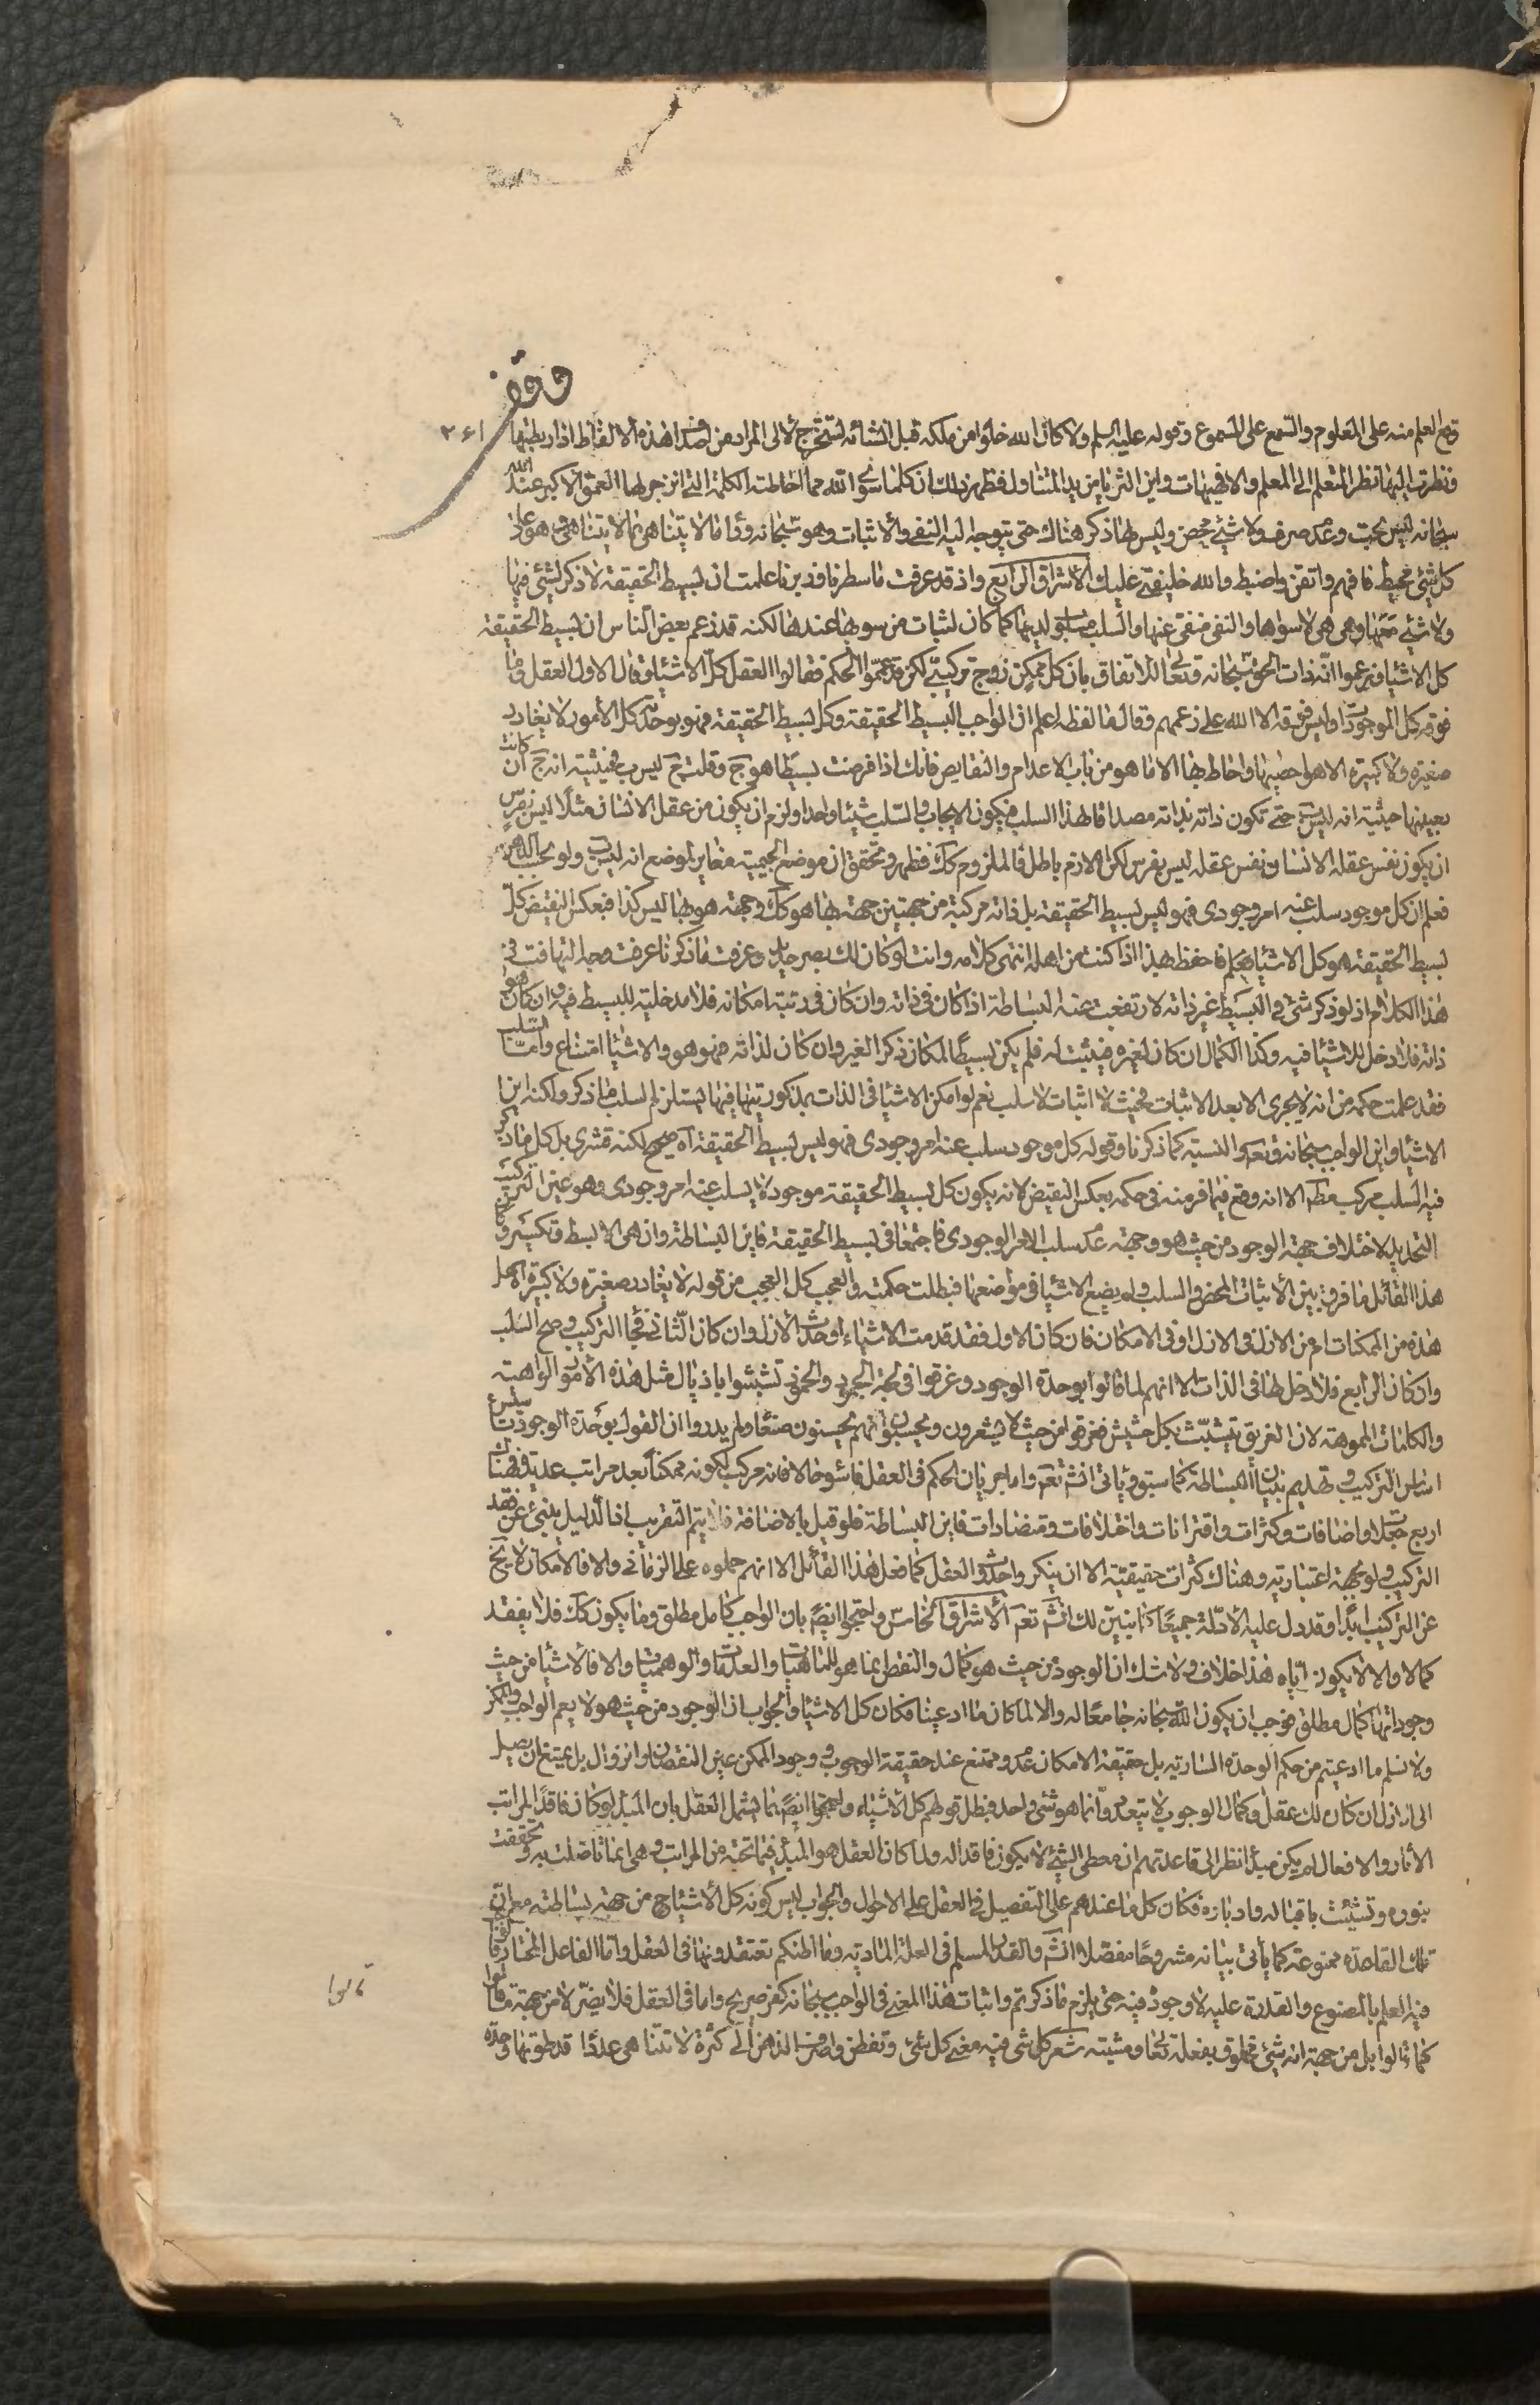 وقف
۲۶۱
وقع العلم منه على المعلوم والسمع على المسموع وقوله عليه السلم ولا كان الله خلوا من ملكه قبل انشائه لتستخرج لآلى المراد من اصداف هذه الالفاظ اذا ربطتها
ونظرت اليها نظر المتعلم الى المعلم والا فهيهات واين الثريا من يد المتناول فظهر بذلك ان كلما سوى الله مما احاطته الكلمة التى انزجر لها العمق الاكبر عند الله
سبحانه ليس بحت وعدم صرف ولا شىء محض وليس لها ذكر هناك حتى يتوجه اليه النفى والاثبات وهو سبحانه وراء ما لا يتناهى بما لا يتناهى وهو على
كل شىء محيط فافهم واتقن واضبط والله خليفتى عليك الاشراق الرابع واذ قد عرفت ما سطرنا ودرينا علمت ان بسيط الحقيقة لا ذكر لشىء فيها
ولا شىء معها وهى هى لا سواها والنفى منفى عنها والسلب مسلوب لديها كما كان لثبات من سويها عندها لكنه قد زعم بعض الناس ان بسيط الحقيقة
كل الاشياء وزعموا انه ذات الحق سبحانه وتعالى للاتفاق بان كل ممكن زوج تركيبى لكن قد عمموا الحكم فقالوا العقل كل الاشياء وقال الاول العقل وما
فوقه كل الموجودات وليس فوقه الا الله على زعمهم وقال ما لفظه اعلم ان الواجب البسيط الحقيقة وكل بسيط الحقيقة فهو بوحدته كل الامور لا يغادر
صغيرة ولا كبيرة الا هو احصيها واحاط بها الا ما هو من باب الاعدام والنقايص فانك اذا فرضت بسيطا هو ج وقلت ج ليس ب فحيثية انه ج ان كانت
بعينها حيثية انه ليس ب حتى تكون ذاته بذاته مصداقا لهذا السلب فيكون الايجاب والسلب شيئا واحدا ولزم ان يكون من عقل الانسان مثلا ليس بفرس
ان يكون نفس عقله الانسان نفس عقله ليس بفرس لكن اللازم باطل فالملزوم كك فظهر وتحقق ان موضع الجيمية مغاير لموضع انه ليس ب ولو بحسب الذهن
فعلم ان كل موجود سلب عنه امر وجودى فهو ليس بسيط الحقيقة بل ذاته مركبة من جهتين جهة بها هو كك وجهة هو بها ليس كذا فبعكس النقيض كل
بسيط الحقيقة هو كل الاشياء فاحفظ هذا اذا كنت من اهله انتهى كلامه وانت لو كان لك بصر حديد وعرفت ما ذكرنا عرفت وجه التهافت فى
هذا الكلام اذ لو ذكر شىء فى البسيط غير ذاته لارتفعت عنه البساطة اذا كان فى ذاته وان كان فى رتبة امكانه فلا مدخلية للبسيط فيه وان كان هو
ذاته فلا دخل للاشياء فيه وكذا الكمال ان كان لغيره فيثبت له فلم يكن بسيطا لمكان ذكر الغير وان كان لذاته فهو هو والاشياء امتناع واما السلب
فقد علمت حكمه من انه لا يجرى الا بعد الاثبات فحيث لا اثبات لا سلب نعم لو امكن الاشياء فى الذات بمذكوريتها فيها ليستلزم السلب ما ذكر ولكنه اين
الاشياء واين الواجب سبحانه وتعالى والنسبة كما ذكرنا وقوله كل موجود سلب عنه امر وجودى فهو ليس بسيط الحقيقة آه صحيح لكنه قشرى بل كل ما ذكر
فيه السلب مركب مطلقا الا انه وقع فيما فر منه فى حكمه بعكس النقيض لانه يكون كل بسيط الحقيقة موجود لا يسلب عنه امر وجودى وهو عين التركيب
التحديد لاختلاف جهة الوجود من حيث هو وجهة عدم سلب الامر الوجودى فاجتمعا فى بسيط الحقيقة فاين البساطة وان هى الا بسط وتكسر و
هذا القائل ما فرق بين الاثبات المحض والسلب ولم يضع الاشياء فى مواضعها فبطلت حكمته والعجب كل العجب من قوله لا يغادر صغيرة ولا كبيرة اهل
هذه من الممكنات ام من الازل وفى الازل او فى الامكان فان كان الاول فقد قدمت الاشياء او حدث الازل وان كان الثانى فجاء التركيب وصح السلب
وان كان الرابع فلا دخل لها فى الذات الا انهم لما قالوا بوحدة الوجود وغرقوا فى لجة الجحود والخمود تشبثوا باذيال مثل هذه الامور الواهية
والكلمات المموهة لان الغريق يتشبث بكل حشيش فغرقوا من حيث لا يشعرون ويحسبون انهم يحسنون صنعا ولم يدروا ان القول بوحدة الوجود تاسيس
اساس التركيب وتهديم بنيان البساطة كما سبق ويأتى انشاء الله تعالى واما جريان الحكم فى العقل فاسوء حالا فانه مركب لكونه ممكنا بعد مراتب عديدة فهناك
اربع جهات واضافات وكثرات واقترانات واختلافات ومتضادات فاين البساطة فلو قيل بالاضافة فلا يتم التقريب اذ الدليل ينبئ عن فقد
التركيب ولو بجهة اعتبارية وهناك كثرات حقيقية الا ان ينكر واحدوث العقل كما فعل هذا القائل الا انهم حملوه على الزمانى والا فالامكان لا يخ
عن التركيب ابدا وقد دل عليه الادلة جميعا كما نبين لك انشاء الله تعالى الاشراق الخامس واحتجوا ايضا بان الواجب كامل مطلق وما يكون كك فلا يفقد
كمالا والا لا يكون اياه هذا خلاف ولا شك ان الوجود من حيث هو كمال والنقص انما هو للماهيات والعدميات والوهميات والا فالاشياء من حيث
وجوداتها كمال مطلق فوجب ان يكون الله سبحانه جامعا له والا لما كان ما ادعينا فكان كل الاشياء والجواب ان الوجود من حيث هو لا يعم الواجب والممكن
ولا نسلم ما ادعيتم من حكم الوحدة السارية بل حقيقة الامكان عدم وممتنع عند حقيقة الوجوب وجود الممكن عين النقصان والزوال بل يمتنع ان يصل
الى الازل ان كان لك عقل وكمال الوجوب لا يتعدد وانما هو شىء واحد فبطل قولهم كل الاشياء واحتجوا ايضا بما يشمل العقل بان المبدء لو كان فاقدا لمراتب
الاثار والافعال لم يكن مبدءا نظرا الى قاعدتهم ان معطى الشىء لا يكون فاقدا له ولما كان العقل هو المبدء فيما تحته من المراتب وهى انما تاصلت به وتحققت
بنوره وتشيئت باقباله وادباره فكان كل ما عندهم على التفصيل فى العقل على الاجمال والجواب ليس كونه كل الاشياء ج من جهة بساطته مع ان
تلك القاعدة ممنوعة كما يأتى بيانه مشروحا مفصلا انشاء الله والقدر المسلم فى العلة المادية وما اظنكم تعتقدونها فى العقل واما الفاعل المختار فما
فيه العلم بالمصنوع والقدرة عليه لا وجوده فيه حتى يلزم ما ذكرتم واثبات هذا المعنى فى الواجب سبحانه كفر صريح واما فى العقل فلا يضر لا من جهة ما قالوا
كما قالوا بل من جهة انه شىء مخلوق بفعله تعالى ومشيته شعر كل شىء فيه معنى كل شىء وتفطن واصرف الذهن الى كثرة لا تتناهى عددا قد طوتها وحدة
قالوا